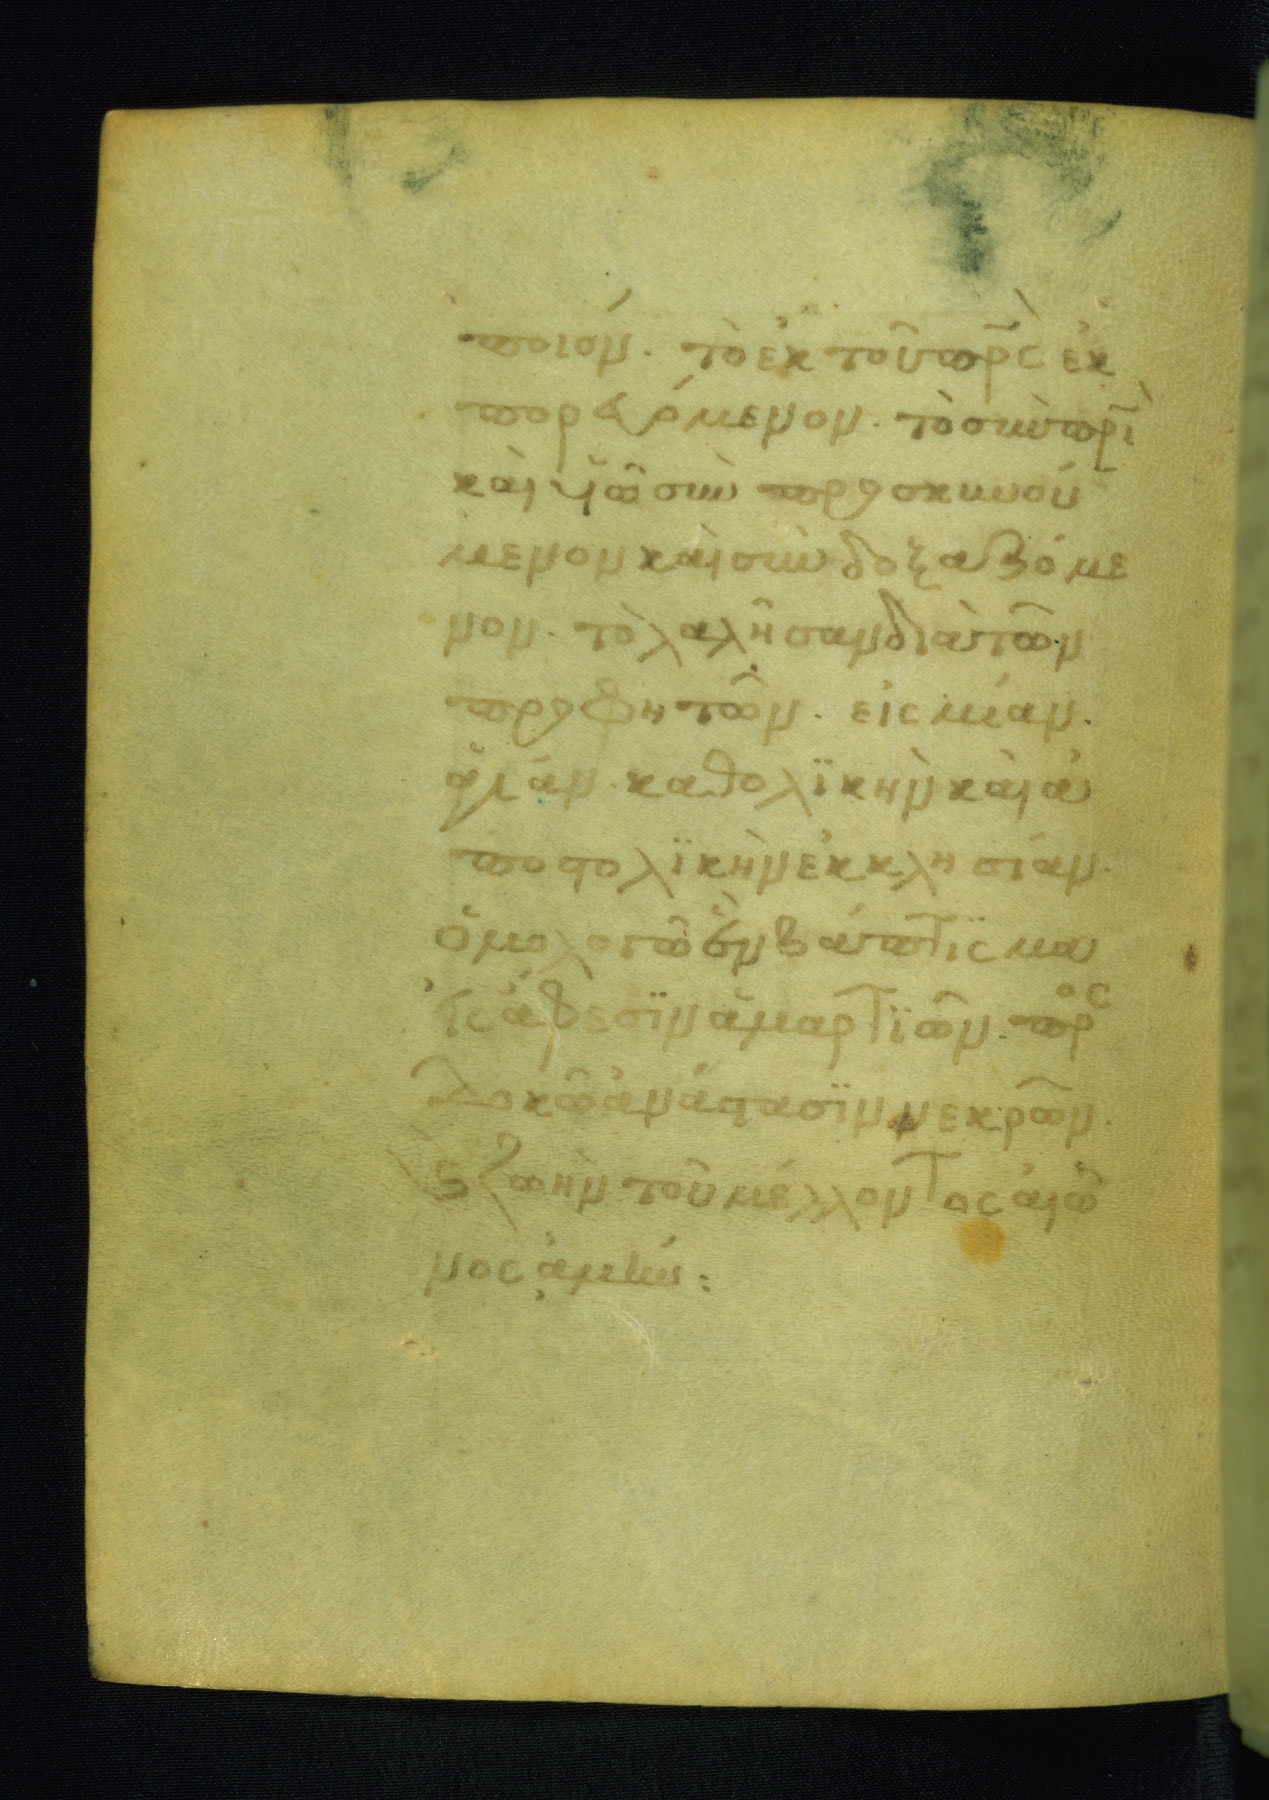 ποιόν. τὸ ἐκ τοῦ πρ̅ς ἐκ
πορευόμενον. τὸ σὺν πρ̅ὶ
καὶ υἱῶ συν προσκυνού
μενον καὶ συν δοξαζόμε
νον. τὸ λαλῆσαν διὰ τῶν
προφητῶν. εἰς μίαν.
ἁγίαν. καθολϊκὴν καὶ ἀ
ποστολϊκὴν ἐκκλησίαν.
ὁμολογῶ ἓν βάπτϊσμα
εἰς ἄφεσϊν ἁμαρτϊῶν. προσ
δοκῶ ἀνάστασϊν νεκρῶν.
ϛ ζωὴν τοῦ μέλλοντος αἰῶ
νος ἀμήν: